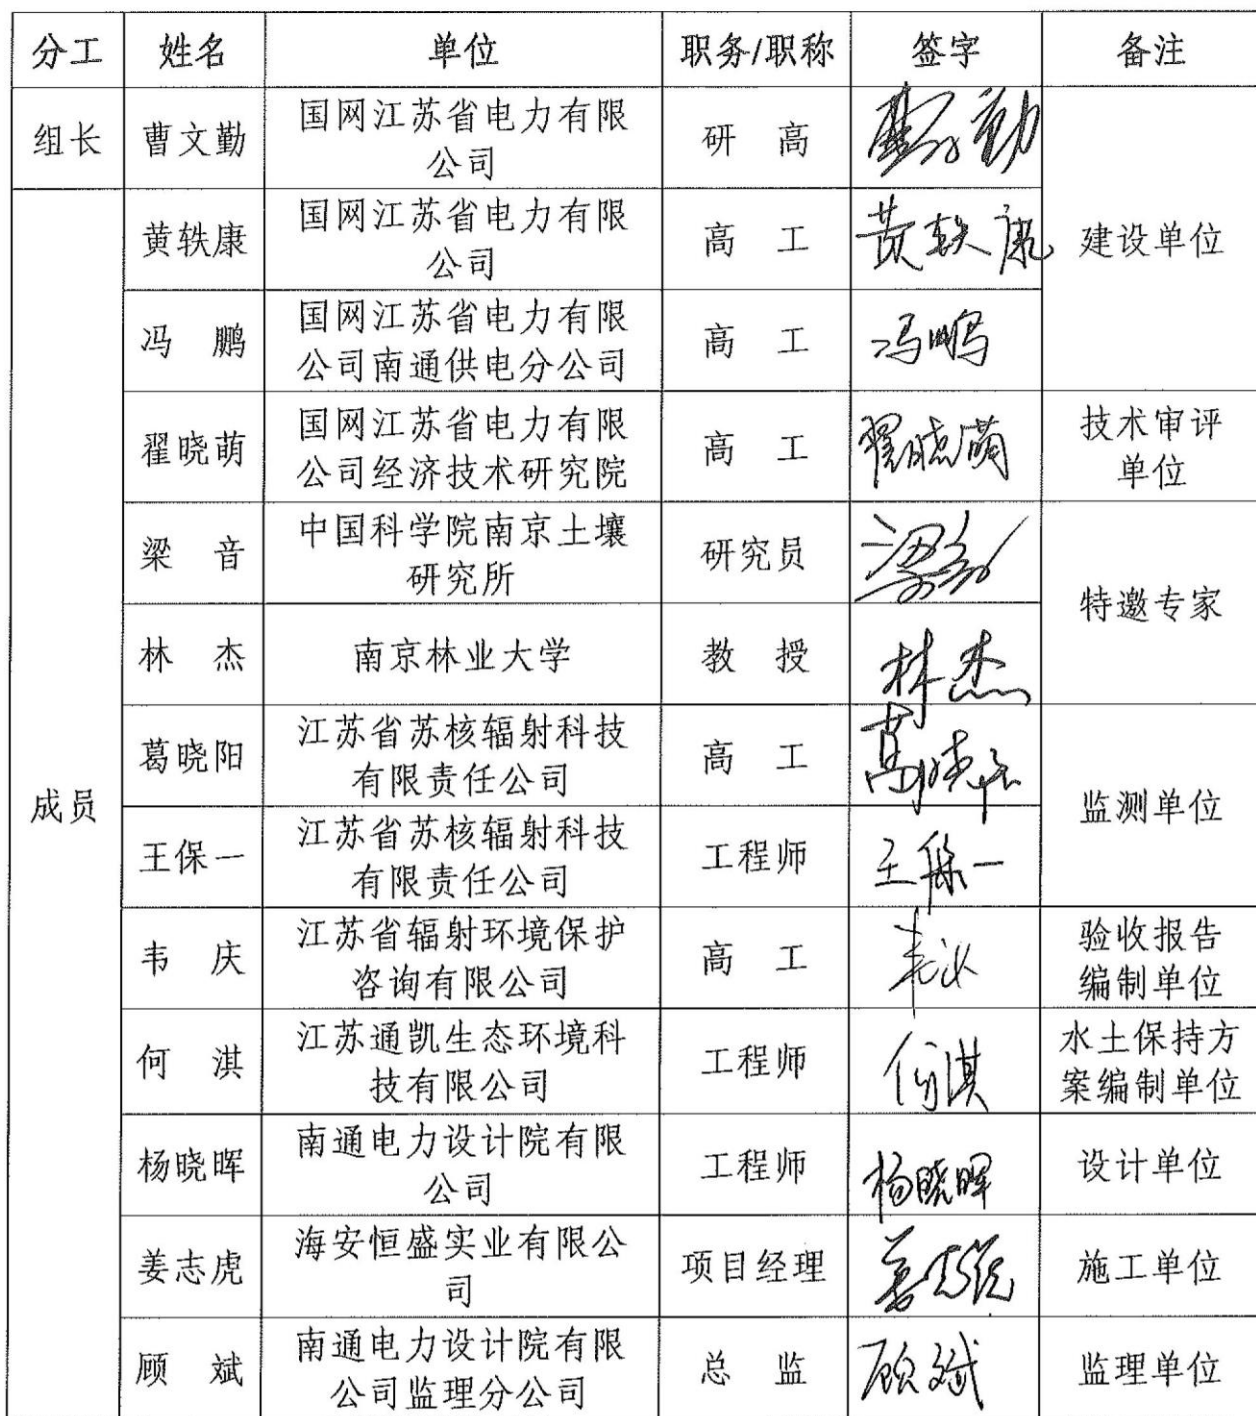 分工 姓名 单位 职务/职称 签字 备注
组长 曹文勤 国网江苏省电力有限
公司 研 高
成员 黄轶康 国网江苏省电力有限
公司 高 工 黄轶康 建设单位
冯 鹏 国网江苏省电力有限
公司南通供电分公司 高 工 冯鹏
翟晓萌 国网江苏省电力有限
公司经济技术研究院 高 工 翟晓萌 技术审评
单位
梁 音 中国科学院南京土壤
研究所 研究员 梁音 特邀专家
林 杰 南京林业大学 教 授 林杰
葛晓阳 江苏省苏核辐射科技
有限责任公司 高 工 葛晓阳 监测单位
王保一 江苏省苏核辐射科技
有限责任公司 工程师 王保一
韦 庆 江苏省辐射环境保护
咨询有限公司 高 工 验收报告
编制单位
何 淇 江苏通凯生态环境科
技有限公司 工程师 何淇 水土保持方
案编制单位
杨晓晖 南通电力设计院有限
公司 工程师 杨晓晖 设计单位
姜志虎 海安恒盛实业有限公
司 项目经理 姜志虎 施工单位
顾 斌 南通电力设计院有限
公司监理分公司 总 监 顾斌 监理单位